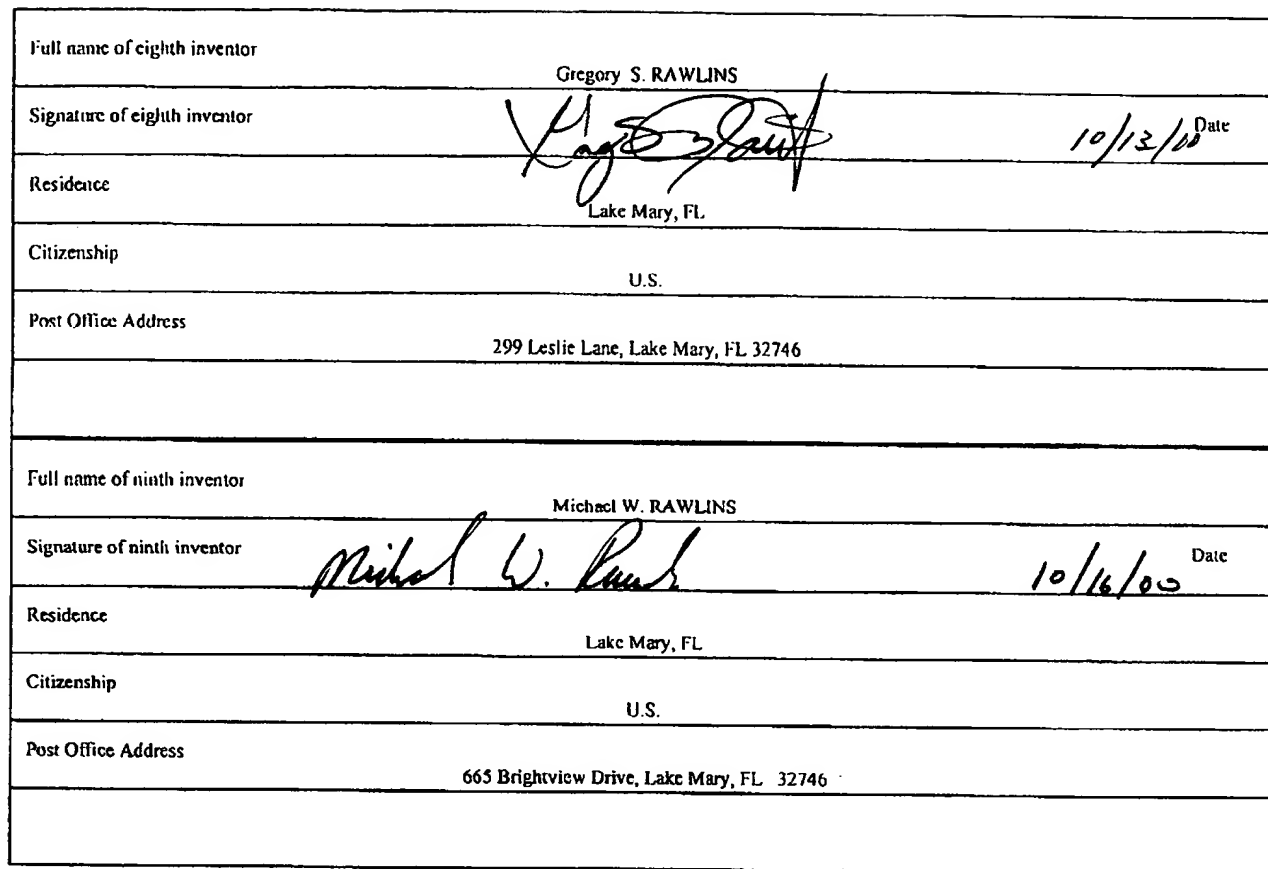 Full name of eighth inventor
Gregory S. RAWLINS
Signature of eighth inventor
10/13/00 Date
Residence
Lake Mary, FL
Citizenship
U.S.
Post Office Address
299 Leslie Lane, Lake Mary, FL 32746
Full name of ninth inventor
Michael W. RAWLINS
Signature of ninth inventor
Michael W. 10/16/00 Date
Residence
Lake Mary, FL
Citizenship
U.S.
Post Office Address
665 Brightview Drive, Lake Mary, FL 32746